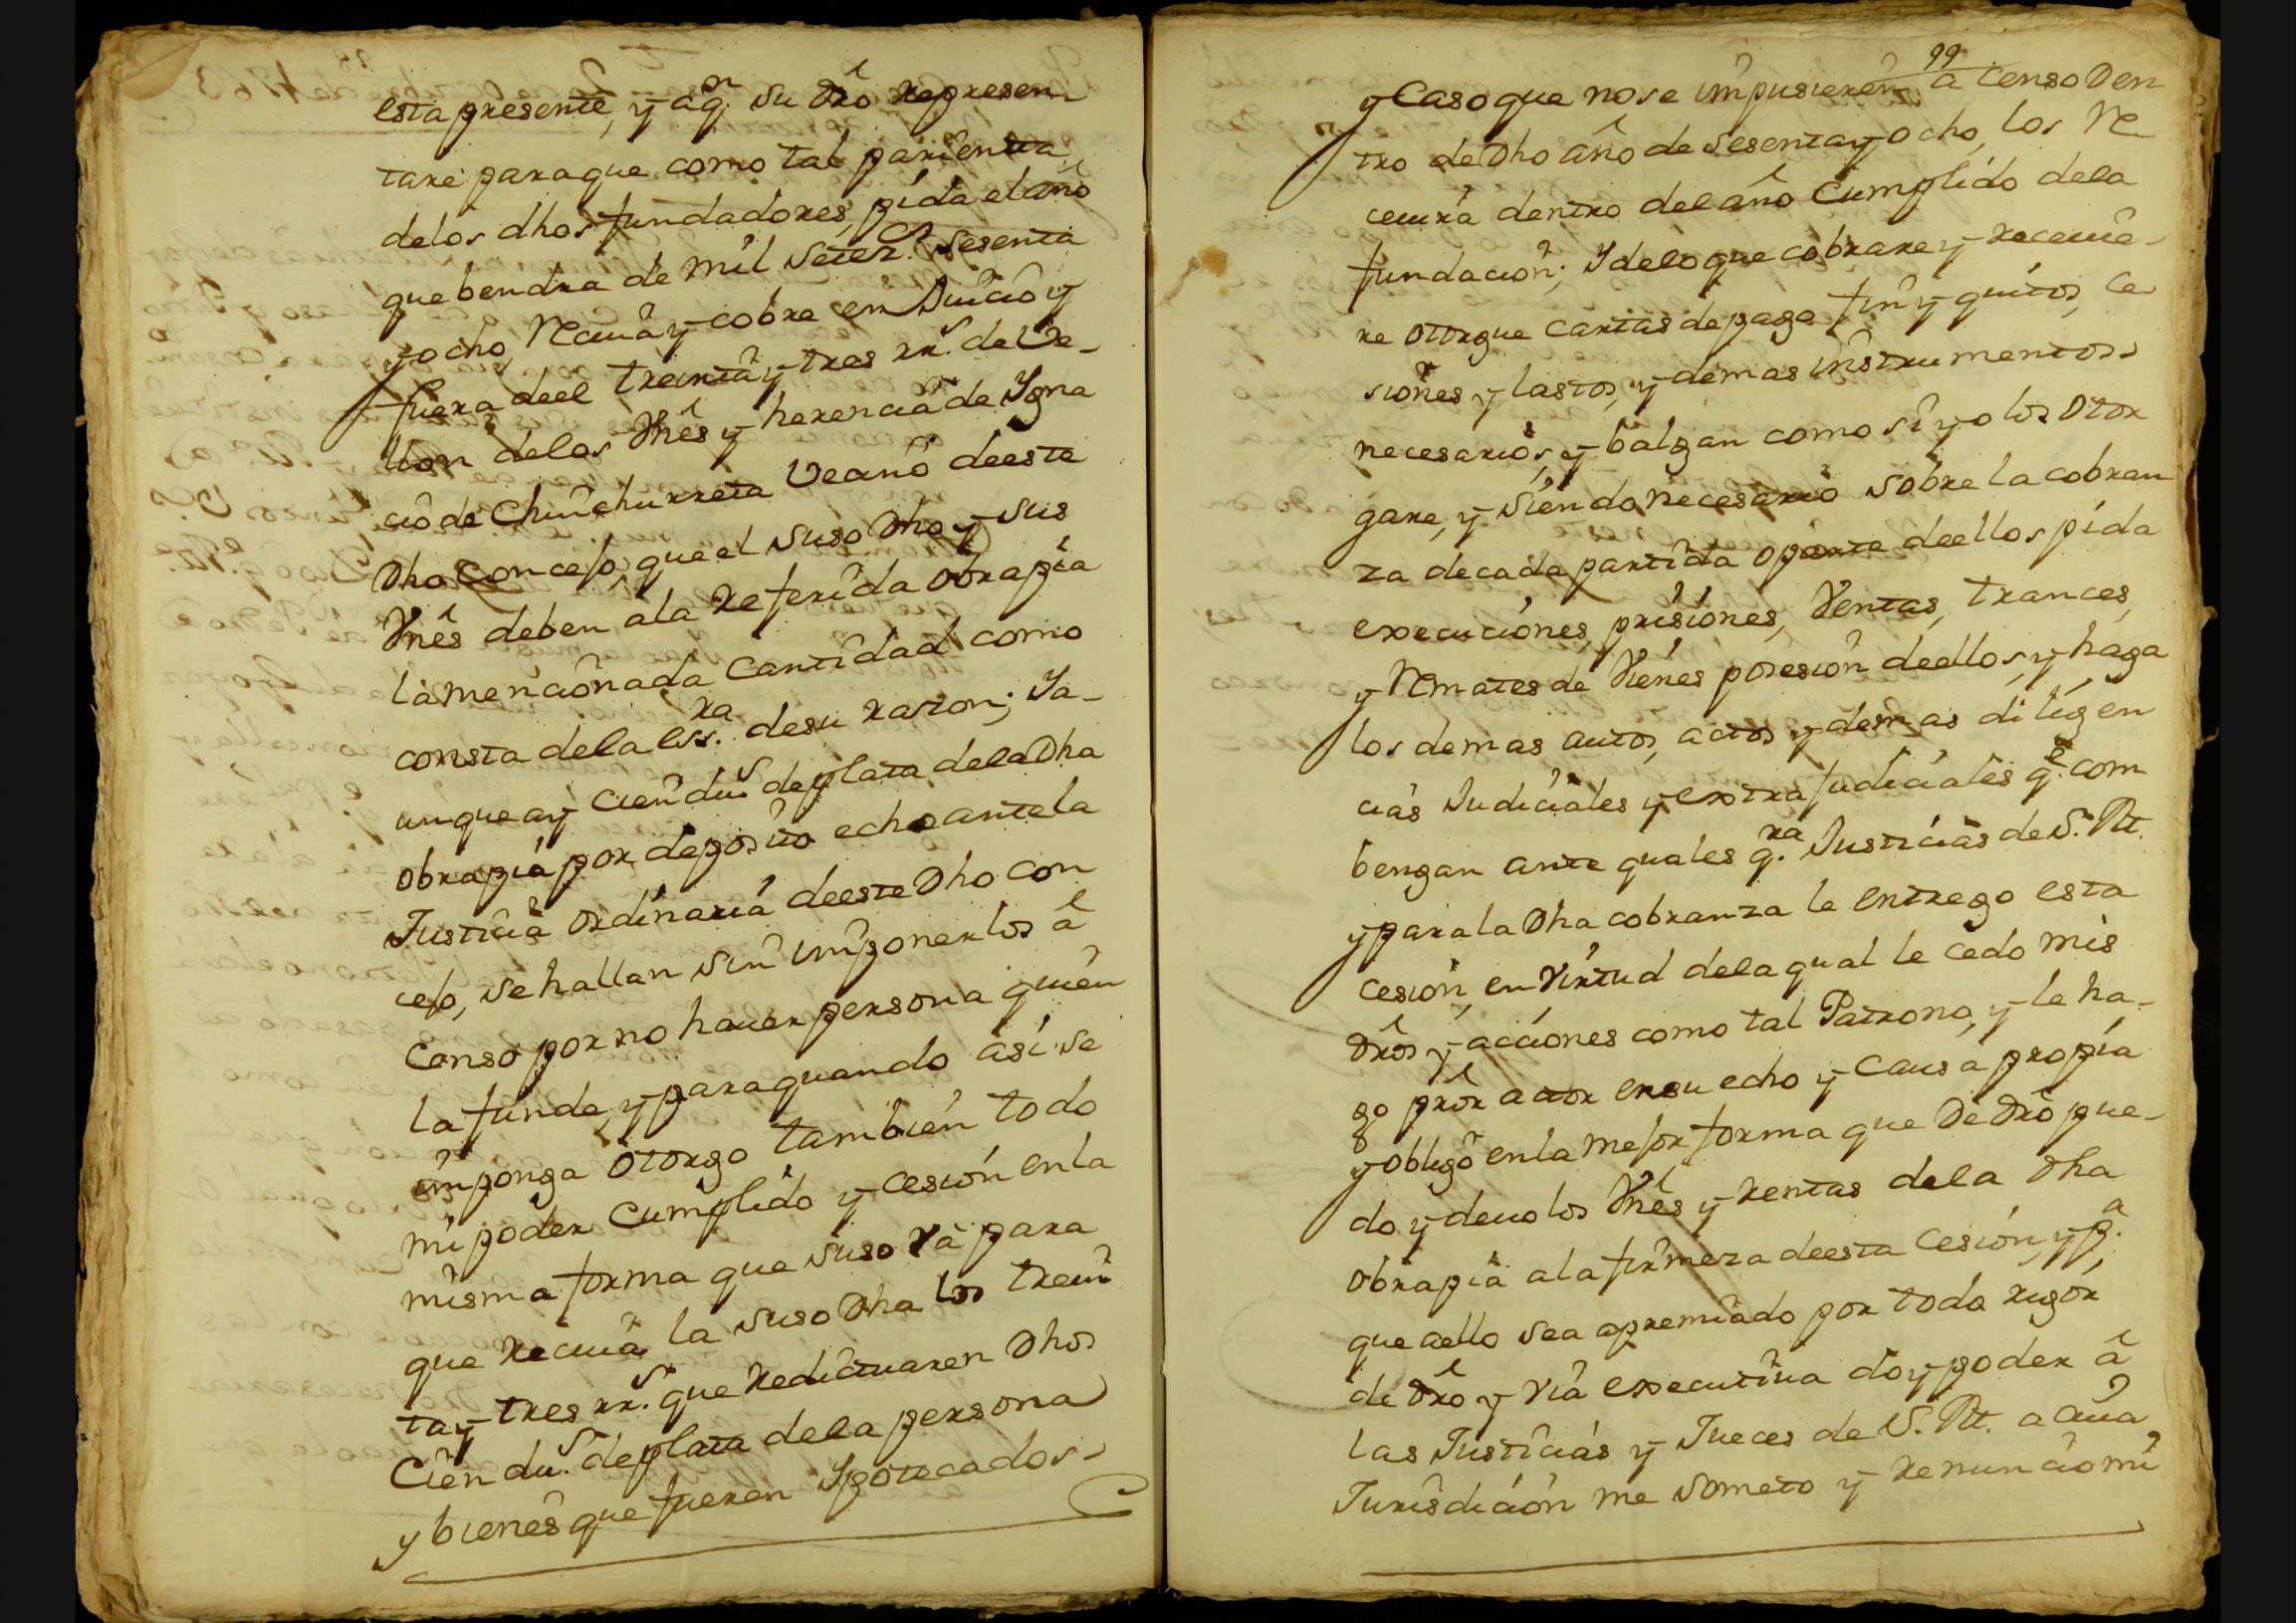 esta presente, y a q.n su dro represen
tare para que como tal parienta
de los dhos fundadores, pida el año
que bendra de mil setez.s sesenta
y ocho, Reciuâ y cobre en Juicio y
fuera deel treinta y tres rr.s de Ve-
llon de los Vnês y herencia de Ygna
cio de Chinchurreta Vecino deeste
Dho Concejo que el suso Dho y sus
Vnês deben a la Referida obrapia
la mencionada Cantidad como
consta de la ess.ra de su razon; Ya-
unque ay cien du.s de plata de la Dha
obrapia por deposito echo ante la
Justicia ordinaria deeste Dho con
cejo, se hallan sin imponerlos â
Censo por no hauer persona quien
la funde, y para quando asi se
imponga otorgo tambien todo
mi poder Cumplido y cesión en la
misma forma que suso va para
que Reciuâ la suso Dha los trein
ta y tres rr.s que Redictuaren Dhos
Cien du.s de plata de la persona
y bienes que fueren Ypotecados
99
y Caso que no se impusieren a censo Den
tro de Dho año de Sesenta y ocho, los Re
ceuirá dentro del año Cumplido de la
fundacion; Y de lo que cobrare y receuie-
re otorgue cartas de paga fin y quitos, ce
siones y lastos, y demas instrumentos
necesarios, y balgan como si yo los otor
gare, y siendo necesario sobre la cobran
za de cada partida o parte deellos pida
execuciones, prisiones, Ventas, trances,
y Remates de Vienes posesion deellos, y haga
los demas autos, actos y demas diligen
cias Judiciales y extrajudiciales q.e com
bengan ante quales q.ra Justicias de S. M.
y para la Dha cobranza le entrego esta
cesion, en virtud de la qual le cedo mis
dros y acciones como tal Patrono, y le ha-
go prôr actor en su echo y Causa propia
y obligo en la mejor forma que De Dro pue-
do y deuo los Vnês y rentas de la Dha
obrapia a la firmeza deesta Cesion, y p.a
que aello sea apremiado por todo rigor
de dro y via executiua doy poder â
las Justicias y Jueces de S. M. a cuia
Jurisdición me someto y renuncio mi